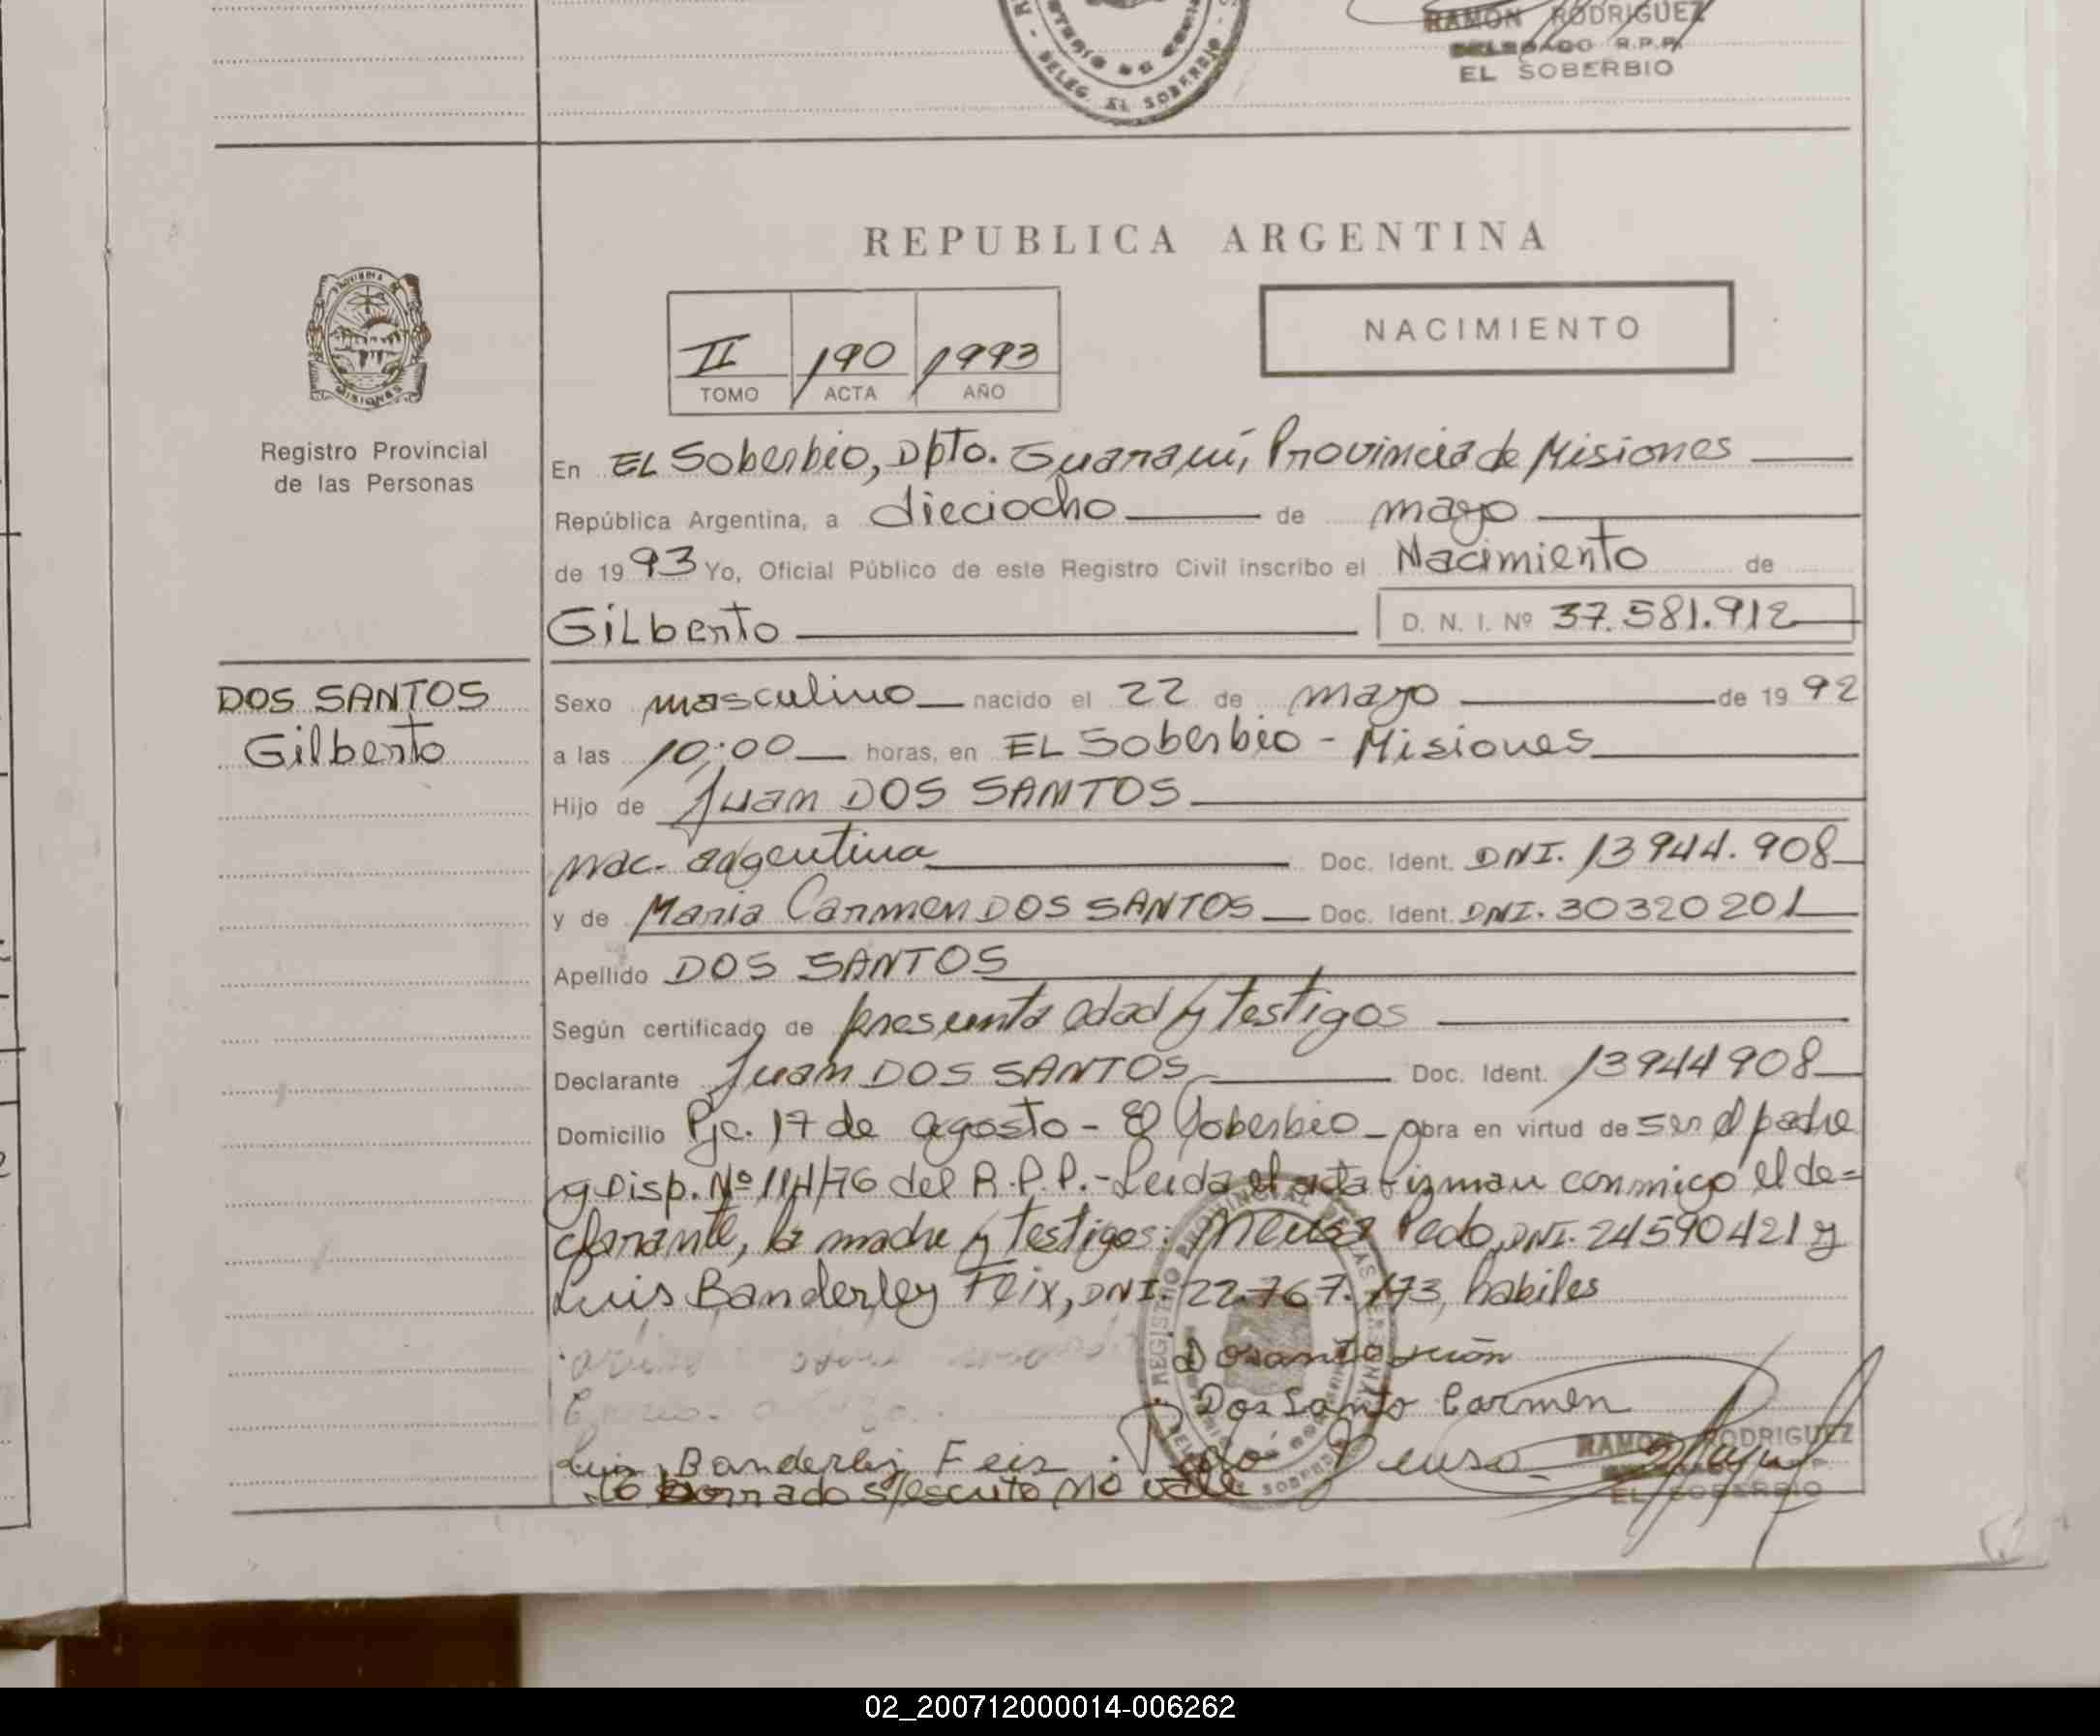 RAMON RODRIGUEZ
DELEGADO R.P.P.
EL SOBERBIO
DELEG. EL SOBERBIO
REPUBLICA ARGENTINA
PROVINCIA DE
MISIONES
II 190 1993
TOMO ACTA AÑO
NACIMIENTO
Registro Provincial
de las Personas
En EL Soberbio, Dpto. Guaraní, Provincia de Misiones
República Argentina, a dieciocho de mayo
de 1993 Yo, Oficial Público de este Registro Civil inscribo el Nacimiento de
Gilberto D. N. I. Nº 37.581.912
DOS SANTOS
Gilberto
Sexo masculino nacido el 22 de mayo de 1992
a las 10:00 horas, en EL Soberbio - Misiones
Hijo de Juan DOS SANTOS
nac. argentina Doc. Ident. DNI. 13944.908
y de Maria Carmen DOS SANTOS Doc. Ident. DNI. 30320201
Apellido DOS SANTOS
Según certificado de presunta edad y testigos
Declarante Juan DOS SANTOS Doc. Ident. 13944908
Domicilio Pje. 17 de agosto - El Soberbio - obra en virtud de ser el padre
y Disp. Nº 114/76 del R.P.P.- Leida el acta firman conmigo el de=
clarante, la madre y testigos: Neusa Pedo, DNI. 24590421 y
Luis Banderley Feix, DNI. 22.767.173, habiles
Dos Santo Carmen
Luis Banderley Feix
RAMON RODRIGUEZ
EL SOBERBIO
Lo borrado s/escrito no vale
02_200712000014-006262